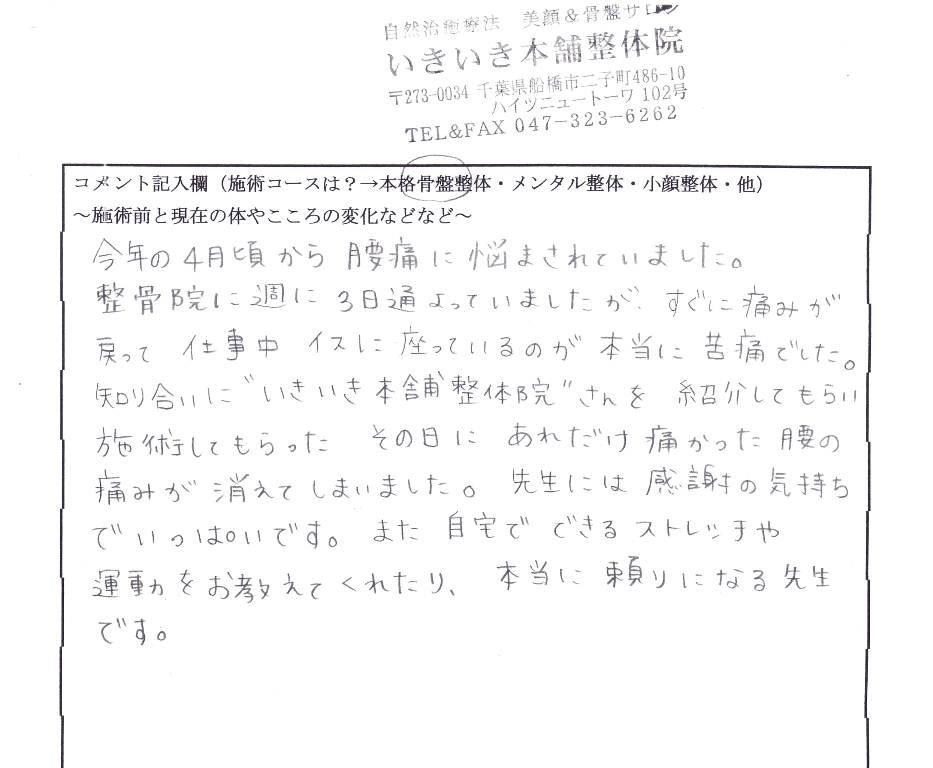 自然治癒療法 美顔&骨盤サロン
いきいき本舗整体院
〒273-0034 千葉県船橋市二子町486-10
ハイツニュートーワ 102号
TEL&FAX 047-323-6262
コメント記入欄（施術コースは？→本格骨盤整体・メンタル整体・小顔整体・他）
～施術前と現在の体やこころの変化などなど～
今年の4月頃から 腰痛に悩まされていました。
整骨院に週に 3日通よっていましたが、すぐに痛みが
戻って 仕事中 イスに座っているのが 本当に 苦痛でした。
知り合いに"いきいき本舗整体院"さんを 紹介してもらい
施術してもらった その日に あれだけ痛かった腰の
痛みが 消えてしまいました。 先生には 感謝の気持ち
でいっぱいです。また 自宅で できるストレッチや
運動をお教えてくれたり、 本当に 頼りになる先生
です。